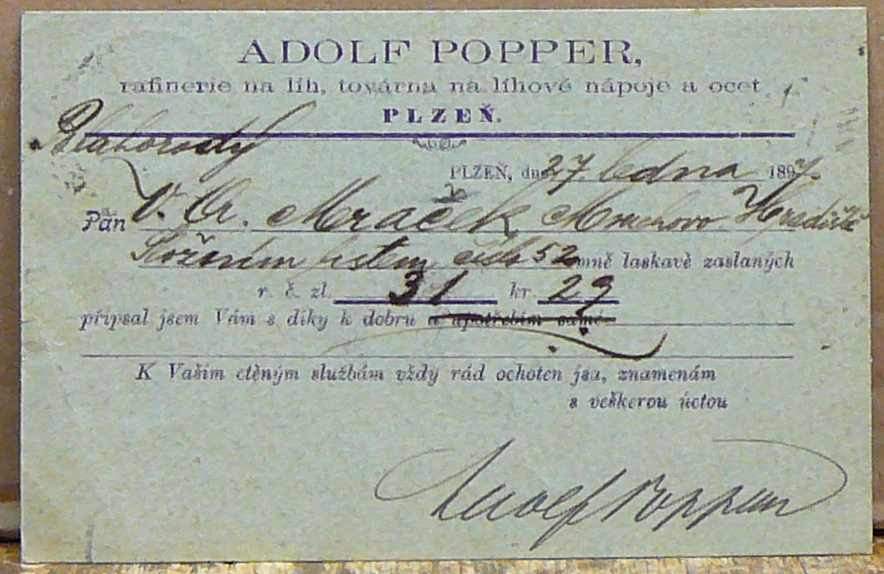 ADOLF POPPER,
rafinerie na líh, továrna na líhové nápoje a ocet
PLZEŇ.
Blahorodý
PLZEŇ, dne 27. ledna 1897.
Pán V. Cr. Mraček Mnichovo Hradiště
Složním listem čís 52 mně laskavě zaslaných
r. č. zl. 31 kr 29
připsal jsem Vám s díky k dobru a upotřebím samé
K Vašim ctěným službám vždy rád ochoten jsa, znamenám
s veškerou úctou
Adolf Popper